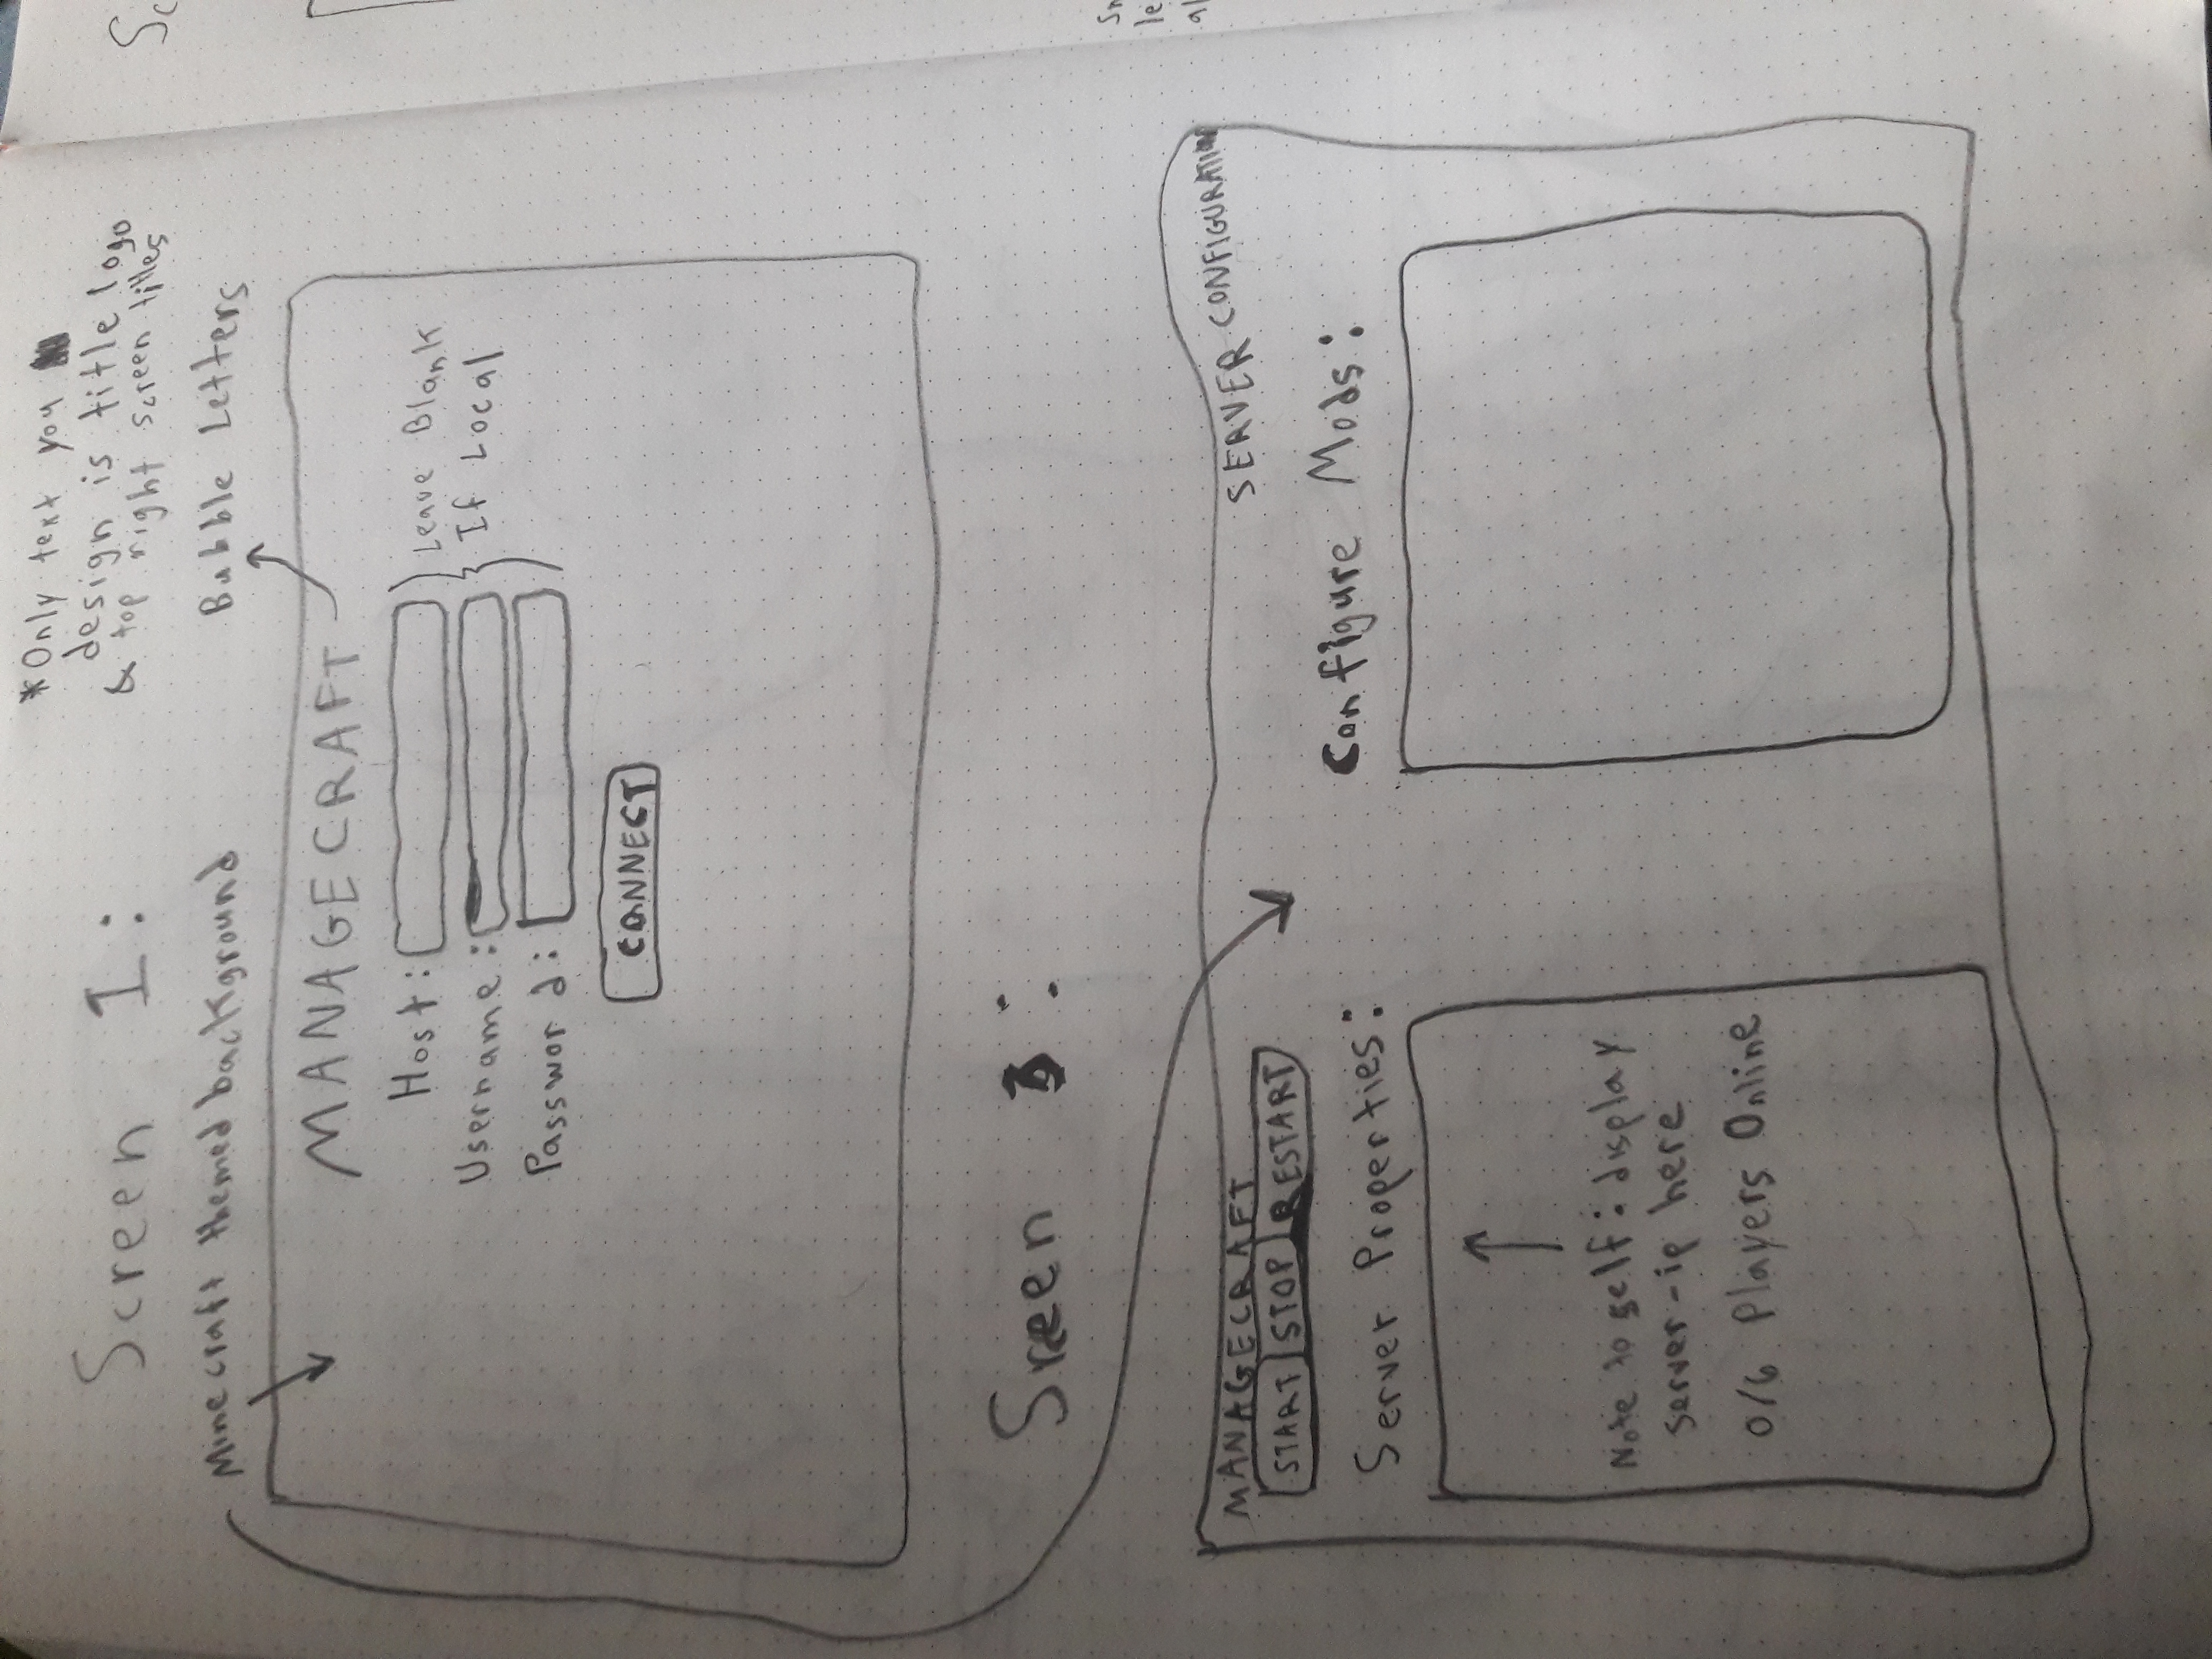 *Only text you
design is title logo
& top right screen titles
Screen 1:
Minecraft themed background
Bubble Letters
MANAGECRAFT
Host:
Username:
Password:
Leave Blank
If Local
CONNECT
Sreen 3:
MANAGECRAFT
SERVER CONFIGURATION
START STOP RESTART
Server Properties:
Configure Mods:
Note to self: display
server-ip here
0/6 Players Online
Sc
le